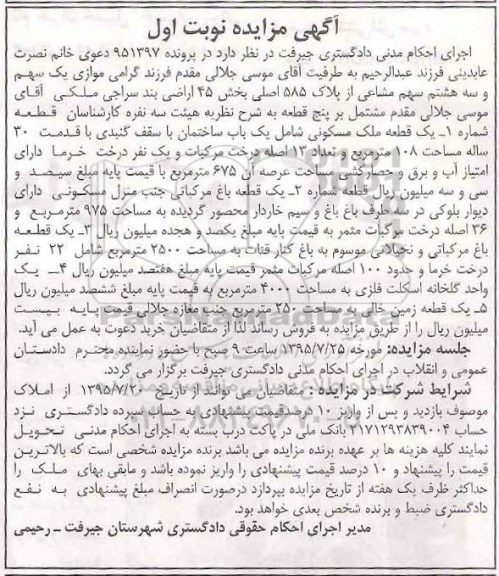 آگهی مزایده نوبت اول
اجرای احکام مدنی دادگستری جیرفت در نظر دارد در پرونده ۹۵۱۳۹۷ دعوی خانم نصرت
عابدینی فرزند عبدالرحیم به طرفیت آقای موسی جلالی مقدم فرزند گرامی موازی یک سهم
و سه هشتم سهم مشاعی از پلاک ۵۸۵ اصلی بخش ۴۵ اراضی بند سراجی ملکی آقای
موسی جلالی مقدم مشتمل بر پنج قطعه به شرح نظریه هیئت سه نفره کارشناسان قطعه
شماره ۱ـ یک قطعه ملک مسکونی شامل یک باب ساختمان با سقف گنبدی با قدمت ۳۰
ساله مساحت ۱۰۸ مترمربع و تعداد ۱۳ اصله درخت مرکبات و یک نفر درخت خرما دارای
امتیاز آب و برق و حصارکشی مساحت عرصه آن ۶۷۵ مترمربع با قیمت پایه مبلغ سیصد و
سی و سه میلیون ریال قطعه شماره ۲ـ یک قطعه باغ مرکباتی جنب منزل مسکونی دارای
دیوار بلوکی در سه طرف باغ و سیم خاردار محصور گردیده به مساحت ۹۷۵ مترمربع و
۳۶ اصله درخت مرکبات مثمر به قیمت پایه مبلغ یکصد و هجده میلیون ریال ۳ـ یک قطعه
باغ مرکباتی و نخیلاتی موسوم به باغ کنار قنات به مساحت ۲۵۰۰ مترمربع شامل ۲۲ نفر
درخت خرما و حدود ۱۰۰ اصله مرکبات مثمر قیمت پایه مبلغ هفتصد میلیون ریال ۴ـ یک
واحد گلخانه اسکلت فلزی به مساحت ۴۰۰۰ مترمربع به قیمت پایه مبلغ ششصد میلیون ریال
۵ـ یک قطعه زمین خالی به مساحت ۲۵۰ مترمربع جنب مغازه جلالی قیمت پایه بیست
میلیون ریال را از طریق مزایده به فروش رساند لذا از متقاضیان خرید دعوت به عمل می آید.
جلسه مزایده: مورخه ۱۳۹۵/۷/۲۵ ساعت ۹ صبح با حضور نماینده محترم دادستان
عمومی و انقلاب در اجرای احکام مدنی دادگستری جیرفت برگزار می گردد.
شرایط شرکت در مزایده : متقاضیان می توانند از تاریخ ۱۳۹۵/۷/۲۰ از املاک
موصوف بازدید و پس از واریز ۱۰ درصد قیمت پیشنهادی به حساب سپرده دادگستری نزد
حساب ۲۱۷۱۲۹۳۸۳۹۰۰۴ بانک ملی در پاکت درب بسته به اجرای احکام مدنی تحویل
نمایند کلیه هزینه ها بر عهده برنده مزایده می باشد برنده مزایده شخصی است که بالاترین
قیمت را پیشنهاد و ۱۰ درصد قیمت پیشنهادی را واریز نموده باشد و مابقی بهای ملک را
حداکثر ظرف یک هفته از تاریخ مزایده بپردازد درصورت انصراف مبلغ پیشنهادی به نفع
دادگستری ضبط و برنده شخص بعدی خواهد بود.
مدیر اجرای احکام حقوقی دادگستری شهرستان جیرفت ـ رحیمی